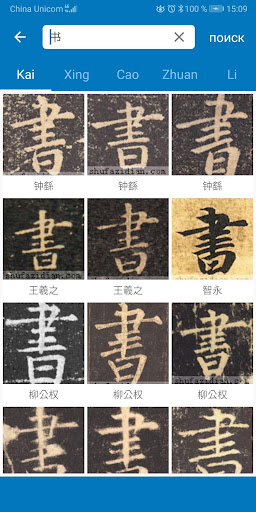 China Unicom 100 % 15:09
书 ПОИСК
Kai Xing Cao Zhuan Li
書 書 書
shufazidian.com
钟繇 钟繇 钟繇
書 書 書
王羲之 王羲之 智永
書 書 書
柳公权 柳公权 柳公权
書 書 書